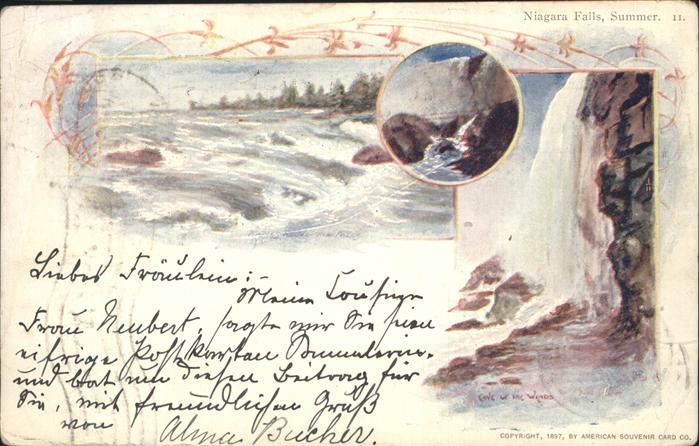 Niagara Falls, Summer. 11.
Liebes Fräulein:-
Meine Cousine
Frau Neubert, sagte mir Sie seien
eifrige Postkarten Sammlerin.
und bat um diesen Beitrag für
Sie, mit freundlichen Gruß
von Alma Bucher.
CAVE OF THE WINDS
COPYRIGHT, 1897, BY AMERICAN SOUVENIR CARD CO.